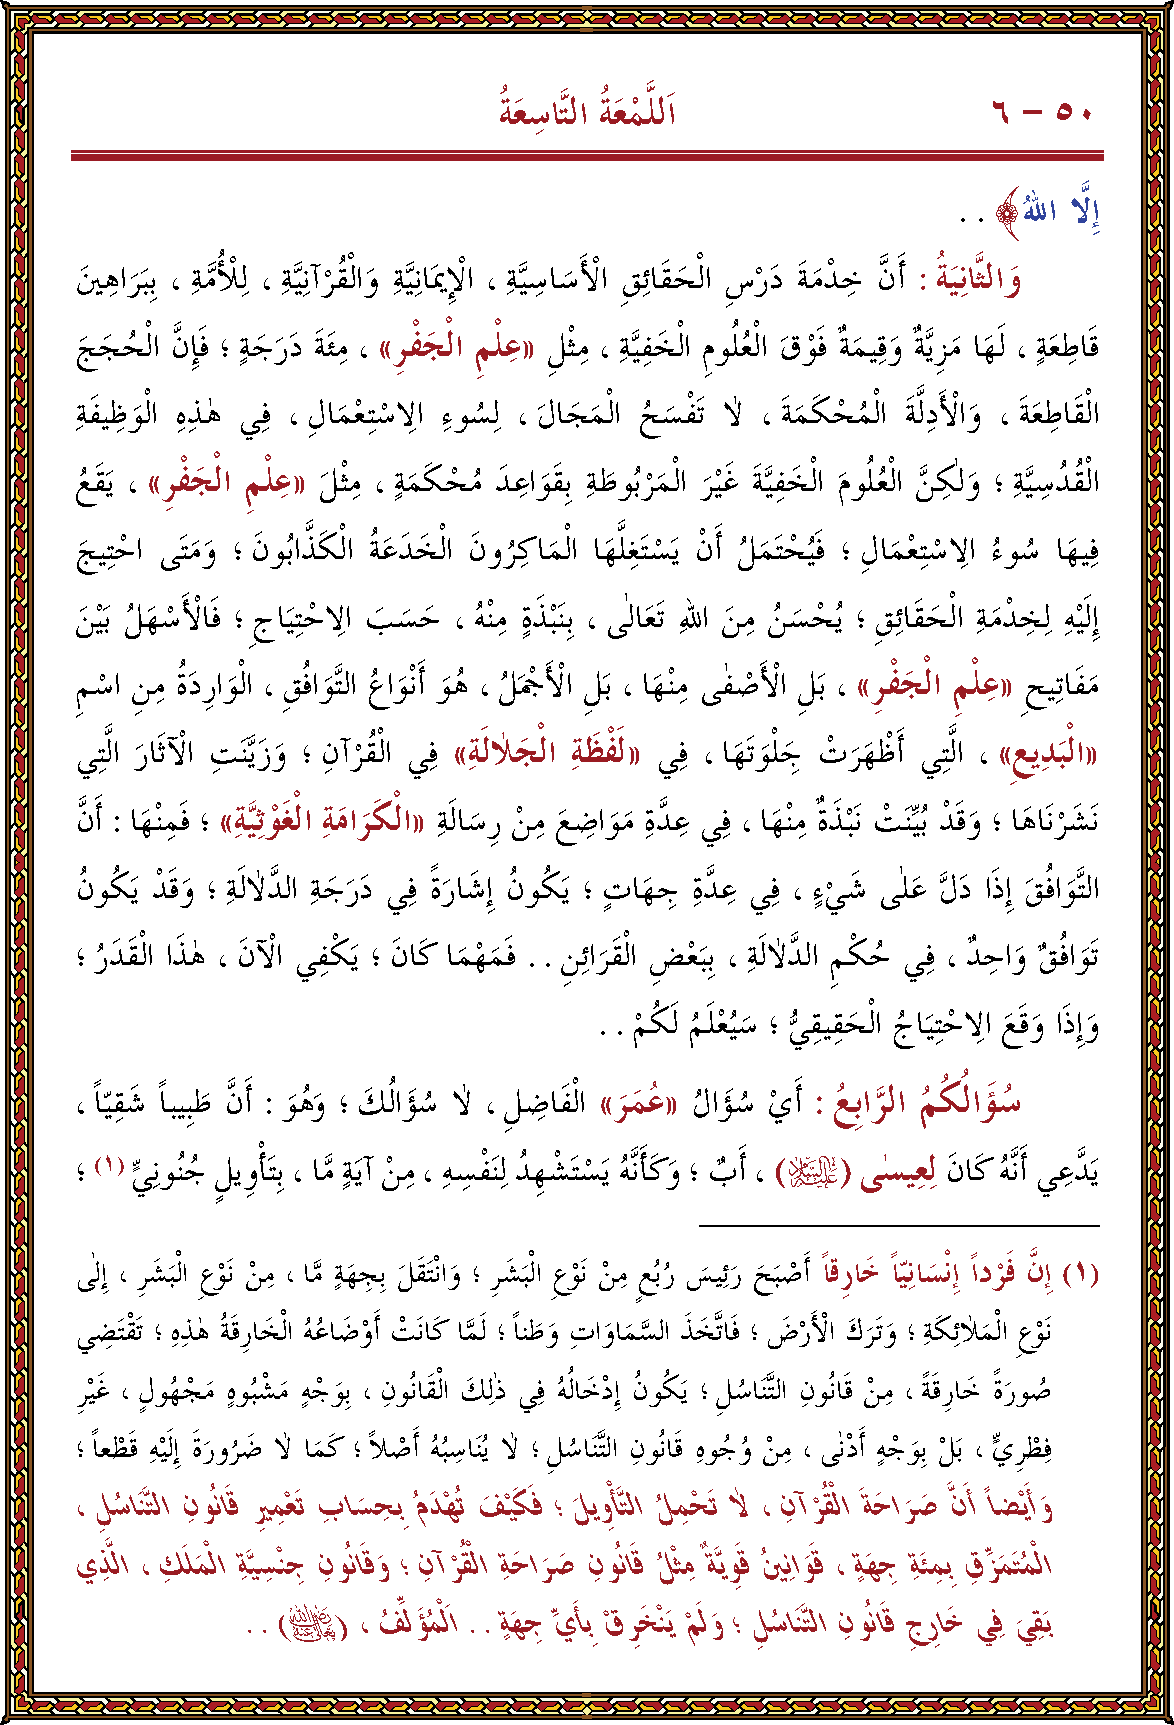 ٥٠ – ٦
اَللَّمْعَةُ التَّاسِعَةُ
إِلَّا اللهُ ﴾ . .
وَالثَّانِيَةُ : أَنَّ خِدْمَةَ دَرْسِ الْحَقَائِقِ الْأَسَاسِيَّةِ ، الْإِيمَانِيَّةِ وَالْقُرْآنِيَّةِ ، لِلْأُمَّةِ ، بِبَرَاهِينَ
قَاطِعَةٍ ، لَهَا مَزِيَّةٌ وَقِيمَةٌ فَوْقَ الْعُلُومِ الْخَفِيَّةِ ، مِثْلِ «عِلْمِ الْجَفْرِ» ، مِئَةَ دَرَجَةٍ ؛ فَإِنَّ الْحُجَجَ
الْقَاطِعَةَ ، وَالْأَدِلَّةَ الْمُحْكَمَةَ ، لَا تَفْسَحُ الْمَجَالَ ، لِسُوءِ الِاسْتِعْمَالِ ، فِي هٰذِهِ الْوَظِيفَةِ
الْقُدُسِيَّةِ ؛ وَلٰكِنَّ الْعُلُومَ الْخَفِيَّةَ غَيْرَ الْمَرْبُوطَةِ بِقَوَاعِدَ مُحْكَمَةٍ ، مِثْلَ «عِلْمِ الْجَفْرِ» ، يَقَعُ
فِيهَا سُوءُ الِاسْتِعْمَالِ ؛ فَيُحْتَمَلُ أَنْ يَسْتَغِلَّهَا الْمَاكِرُونَ الْخَدَعَةُ الْكَذَّابُونَ ؛ وَمَتَى احْتِيجَ
إِلَيْهِ لِخِدْمَةِ الْحَقَائِقِ ؛ يُحْسَنُ مِنَ اللهِ تَعَالٰى ، بِنَبْذَةٍ مِنْهُ ، حَسَبَ الِاحْتِيَاجِ ؛ فَالْأَسْهَلُ بَيْنَ
مَفَاتِيحِ «عِلْمِ الْجَفْرِ» ، بَلِ الْأَصْفٰى مِنْهَا ، بَلِ الْأَجْمَلُ ، هُوَ أَنْوَاعُ التَّوَافُقِ ، الْوَارِدَةُ مِنِ اسْمِ
«الْبَدِيعِ» ، الَّتِي أَظْهَرَتْ جِلْوَتَهَا ، فِي «لَفْظَةِ الْجَلَالَةِ» فِي الْقُرْآنِ ؛ وَزَيَّنَتِ الْآثَارَ الَّتِي
نَشَرْنَاهَا ؛ وَقَدْ بُيِّنَتْ نَبْذَةٌ مِنْهَا ، فِي عِدَّةِ مَوَاضِعَ مِنْ رِسَالَةِ «الْكَرَامَةِ الْغَوْثِيَّةِ» ؛ فَمِنْهَا : أَنَّ
التَّوَافُقَ إِذَا دَلَّ عَلٰى شَيْءٍ ، فِي عِدَّةِ جِهَاتٍ ؛ يَكُونُ إِشَارَةً فِي دَرَجَةِ الدَّلَالَةِ ؛ وَقَدْ يَكُونُ
تَوَافُقٌ وَاحِدٌ ، فِي حُكْمِ الدَّلَالَةِ ، بِبَعْضِ الْقَرَائِنِ . . فَمَهْمَا كَانَ ؛ يَكْفِي الْآنَ ، هٰذَا الْقَدَرُ ؛
وَإِذَا وَقَعَ الِاحْتِيَاجُ الْحَقِيقِيُّ ؛ سَيُعْلَمُ لَكُمْ . .
سُؤَالُكُمُ الرَّابِعُ : أَيْ سُؤَالُ «عُمَرَ» الْفَاضِلِ ، لَا سُؤَالُكَ ؛ وَهُوَ : أَنَّ طَبِيباً شَقِيّاً ،
يَدَّعِي أَنَّهُ كَانَ لِعِيسٰى (عَلَيْهِ السَّلَامُ) ، أَبٌ ؛ وَكَأَنَّهُ يَسْتَشْهِدُ لِنَفْسِهِ ، مِنْ آيَةٍ مَّا ، بِتَأْوِيلٍ جُنُونِيٍّ (١) ؛
(١) إِنَّ فَرْداً إِنْسَانِيّاً خَارِقاً أَصْبَحَ رَئِيسَ رُبُعٍ مِنْ نَوْعِ الْبَشَرِ ؛ وَانْتَقَلَ بِجِهَةٍ مَّا ، مِنْ نَوْعِ الْبَشَرِ ، إِلٰى
نَوْعِ الْمَلَائِكَةِ ؛ وَتَرَكَ الْأَرْضَ ؛ فَاتَّخَذَ السَّمَاوَاتِ وَطَناً ؛ لَمَّا كَانَتْ أَوْضَاعُهُ الْخَارِقَةُ هٰذِهِ ؛ تَقْتَضِي
صُورَةً خَارِقَةً ، مِنْ قَانُونِ التَّنَاسُلِ ؛ يَكُونُ إِدْخَالُهُ فِي ذٰلِكَ الْقَانُونِ ، بِوَجْهٍ مَشْبُوهٍ مَجْهُولٍ ، غَيْرِ
فِطْرِيٍّ ، بَلْ بِوَجْهٍ أَدْنٰى ، مِنْ وُجُوهِ قَانُونِ التَّنَاسُلِ ؛ لَا يُنَاسِبُهُ أَصْلاً ؛ كَمَا لَا ضَرُورَةَ إِلَيْهِ قَطْعاً ؛
وَأَيْضاً أَنَّ صَرَاحَةَ الْقُرْآنِ ، لَا تَحْمِلُ التَّأْوِيلَ ؛ فَكَيْفَ تُهْدَمُ بِحِسَابِ تَعْمِيرِ قَانُونِ التَّنَاسُلِ ،
الْمُتَمَزِّقِ بِمِئَةِ جِهَةٍ ، قَوَانِينُ قَوِيَّةٌ مِثْلُ قَانُونِ صَرَاحَةِ الْقُرْآنِ ؛ وَقَانُونِ جِنْسِيَّةِ الْمَلَكِ ، الَّذِي
بَقِيَ فِي خَارِجِ قَانُونِ التَّنَاسُلِ ؛ وَلَمْ يَنْخَرِقْ بِأَيِّ جِهَةٍ . . اَلْمُؤَلِّفُ ، (رَضِيَ اللهُ تَعَالَى عَنْهُ) . .